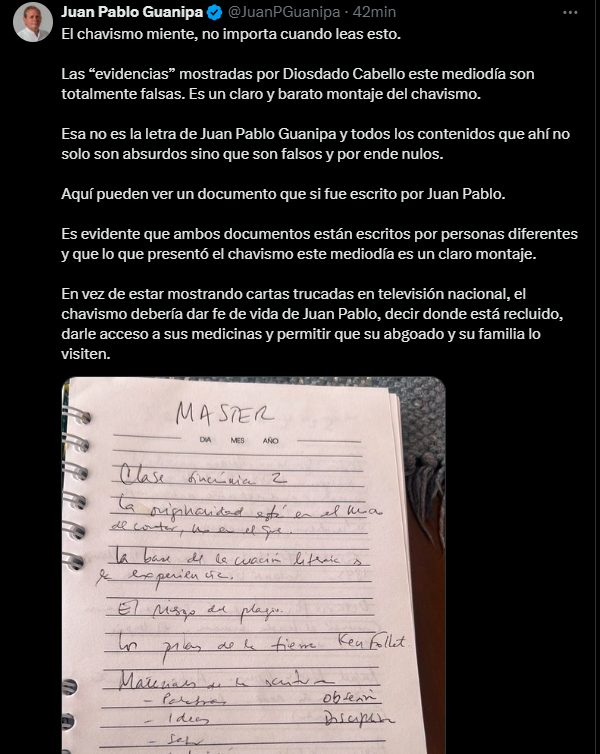 Juan Pablo Guanipa @JuanPGuanipa · 42min
El chavismo miente, no importa cuando leas esto.
Las “evidencias” mostradas por Diosdado Cabello este mediodía son
totalmente falsas. Es un claro y barato montaje del chavismo.
Esa no es la letra de Juan Pablo Guanipa y todos los contenidos que ahí no
solo son absurdos sino que son falsos y por ende nulos.
Aquí pueden ver un documento que si fue escrito por Juan Pablo.
Es evidente que ambos documentos están escritos por personas diferentes
y que lo que presentó el chavismo este mediodía es un claro montaje.
En vez de estar mostrando cartas trucadas en televisión nacional, el
chavismo debería dar fe de vida de Juan Pablo, decir donde está recluido,
darle acceso a sus medicinas y permitir que su abgoado y su familia lo
visiten.
MASTER
DIA MES AÑO
Clase 2
La originalidad está en el
de contar, no en el que.
La base de la creación literaria
la experiencia.
El riesgo del plagio.
Los pilares de la tierra Ken Follet
Materiales de la
- Palabras
- Ideas Disciplina